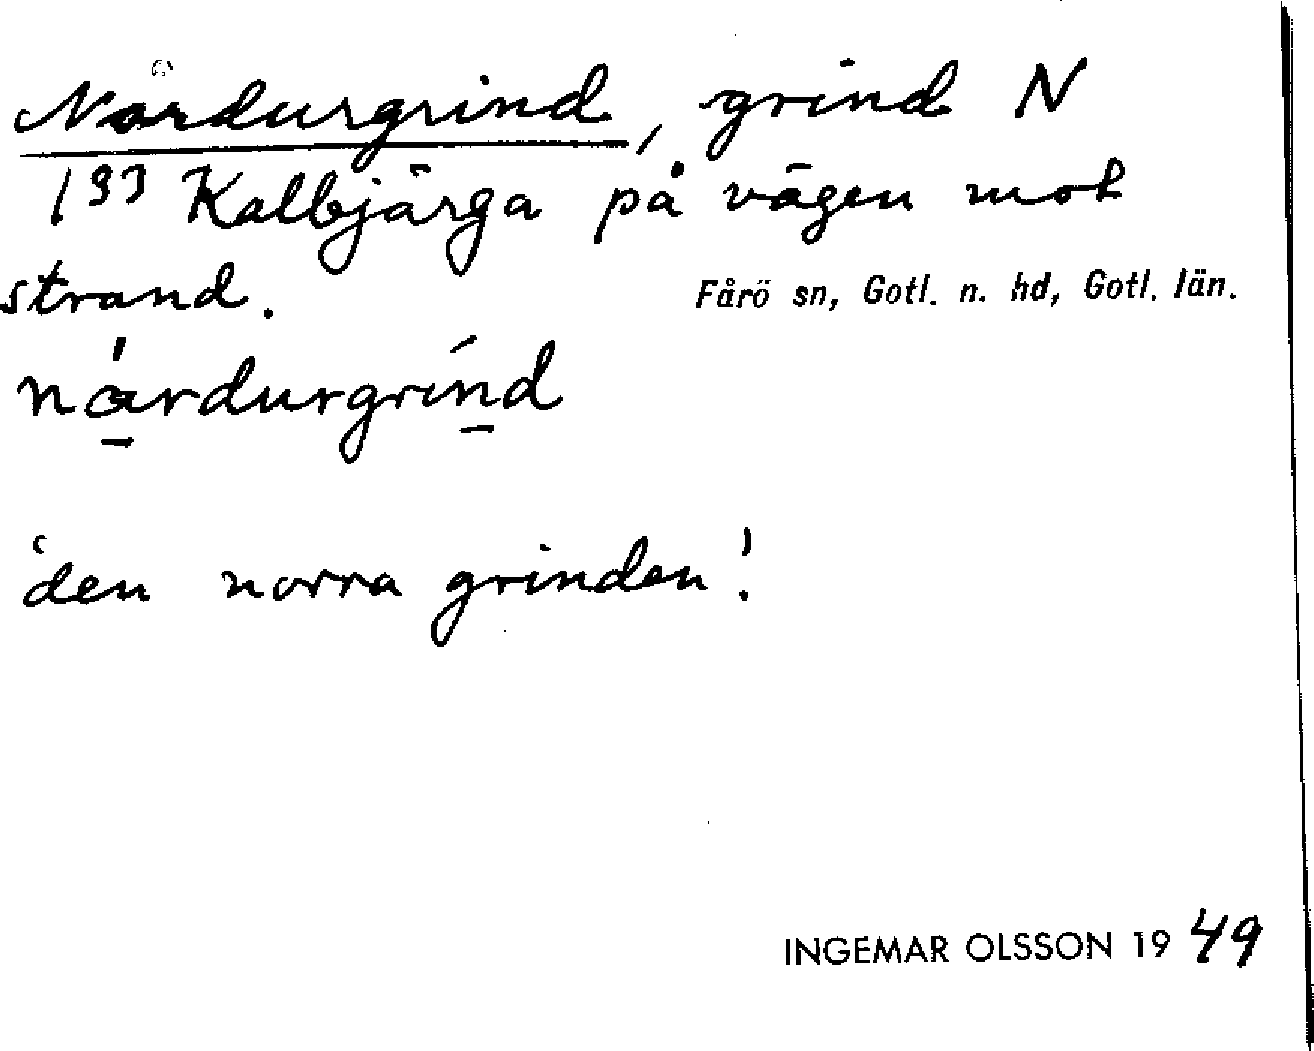 Nordurgrind, grind N
193 Kalbjärga på vägen mot
strand.
Fårö sn, Gotl. n. hd, Gotl. län.
nårdurgrínd
'den norra grinden'.
INGEMAR OLSSON 1949